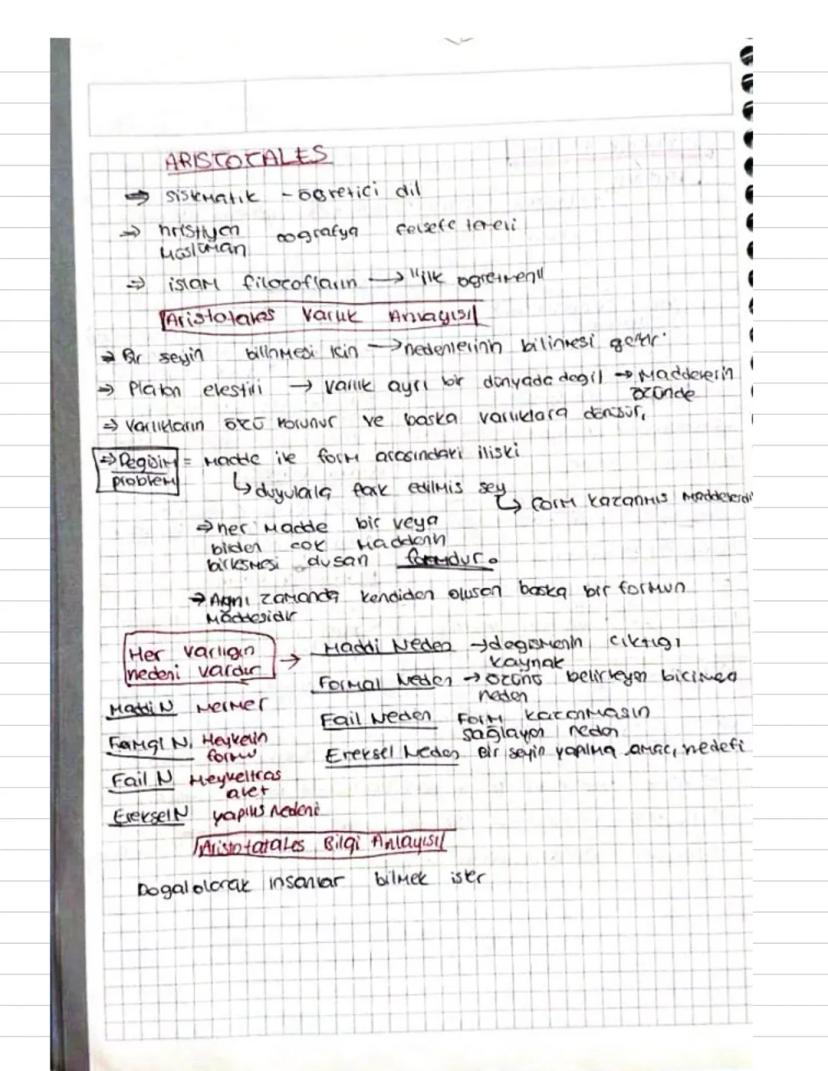 ARISTOTALES
⇒ sistematik - öğretici dil
⇒ hristiyan coğrafya felsefe temeli
müslüman
⇒ islam filozofların → "ilk öğretmeni"
Aristotales Varlık Anlayışı
⇒ Bir şeyin bilinmesi için → nedenlerinin bilinmesi gerkir.
⇒ Platon eleştiri → varlık ayrı bir dünyada değil → Maddelerin
özünde
⇒ Varlıkların özü korunur ve başka varlıklara dönüşür.
⇒ Değişim = Madde ile form arasındaki ilişki
problem
↳ duyularla fark edilmiş şey
↳ form kazanmış maddelerdir
⇒ her madde bir veya
birden çok maddenin
birleşmesi oluşan formdur.
→ Aynı zamanda kendiden oluşan başka bir formun
maddesidir
Her varlığın
nedeni vardır →
Maddi Neden → değişmenin çıktığı
kaynak
Formal Neden → özünü belirleyen biçimsel
neden
Fail Neden Form kazanmasın
sağlayan neden
Ereksel Neden Bir şeyin yapılma amacı, hedefi
Maddi N Mermer
Formal N. Heykelin
formu
Fail N Heykeltraş
alet
Ereksel N yapılış nedeni
Aristotales Bilgi Anlayışı
Doğal olarak insanlar bilmek ister